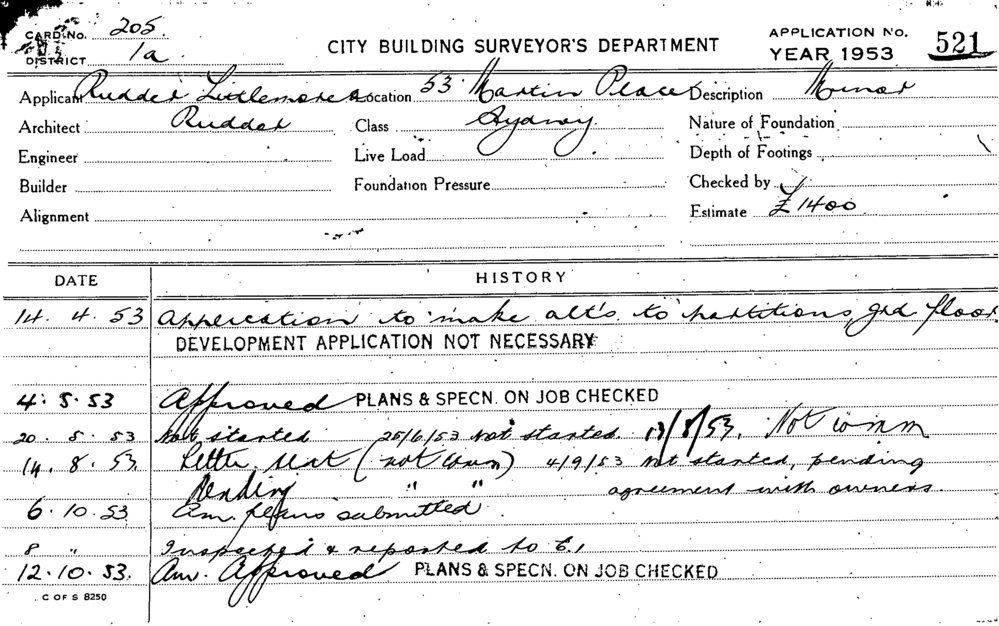 CARD No. 205
DISTRICT 1a
CITY BUILDING SURVEYOR'S DEPARTMENT
APPLICATION No.
YEAR 1953 521
Applicant Rudder Littlemore & Location 53 Martin Place Description Minor
Architect Rudder Class Sydney Nature of Foundation
Engineer Live Load Depth of Footings
Builder Foundation Pressure Checked by
Alignment Estimate £1400
DATE HISTORY
14. 4. 53 Application to make alt's to partitions, grd floor
DEVELOPMENT APPLICATION NOT NECESSARY
4. 5. 53 Approved PLANS & SPECN. ON JOB CHECKED
20. 5. 53 Not started 25/6/53 Not started. 13/8/53. Not comm
14. 8. 53. Letter sent (not comm) 4/9/53 Not started, pending
Pending " " agreement with owners
6. 10. 53 Am. plans submitted.
8 " Inspected & reported to
12. 10. 53. Am. Approved PLANS & SPECN. ON JOB CHECKED
C OF S 8250